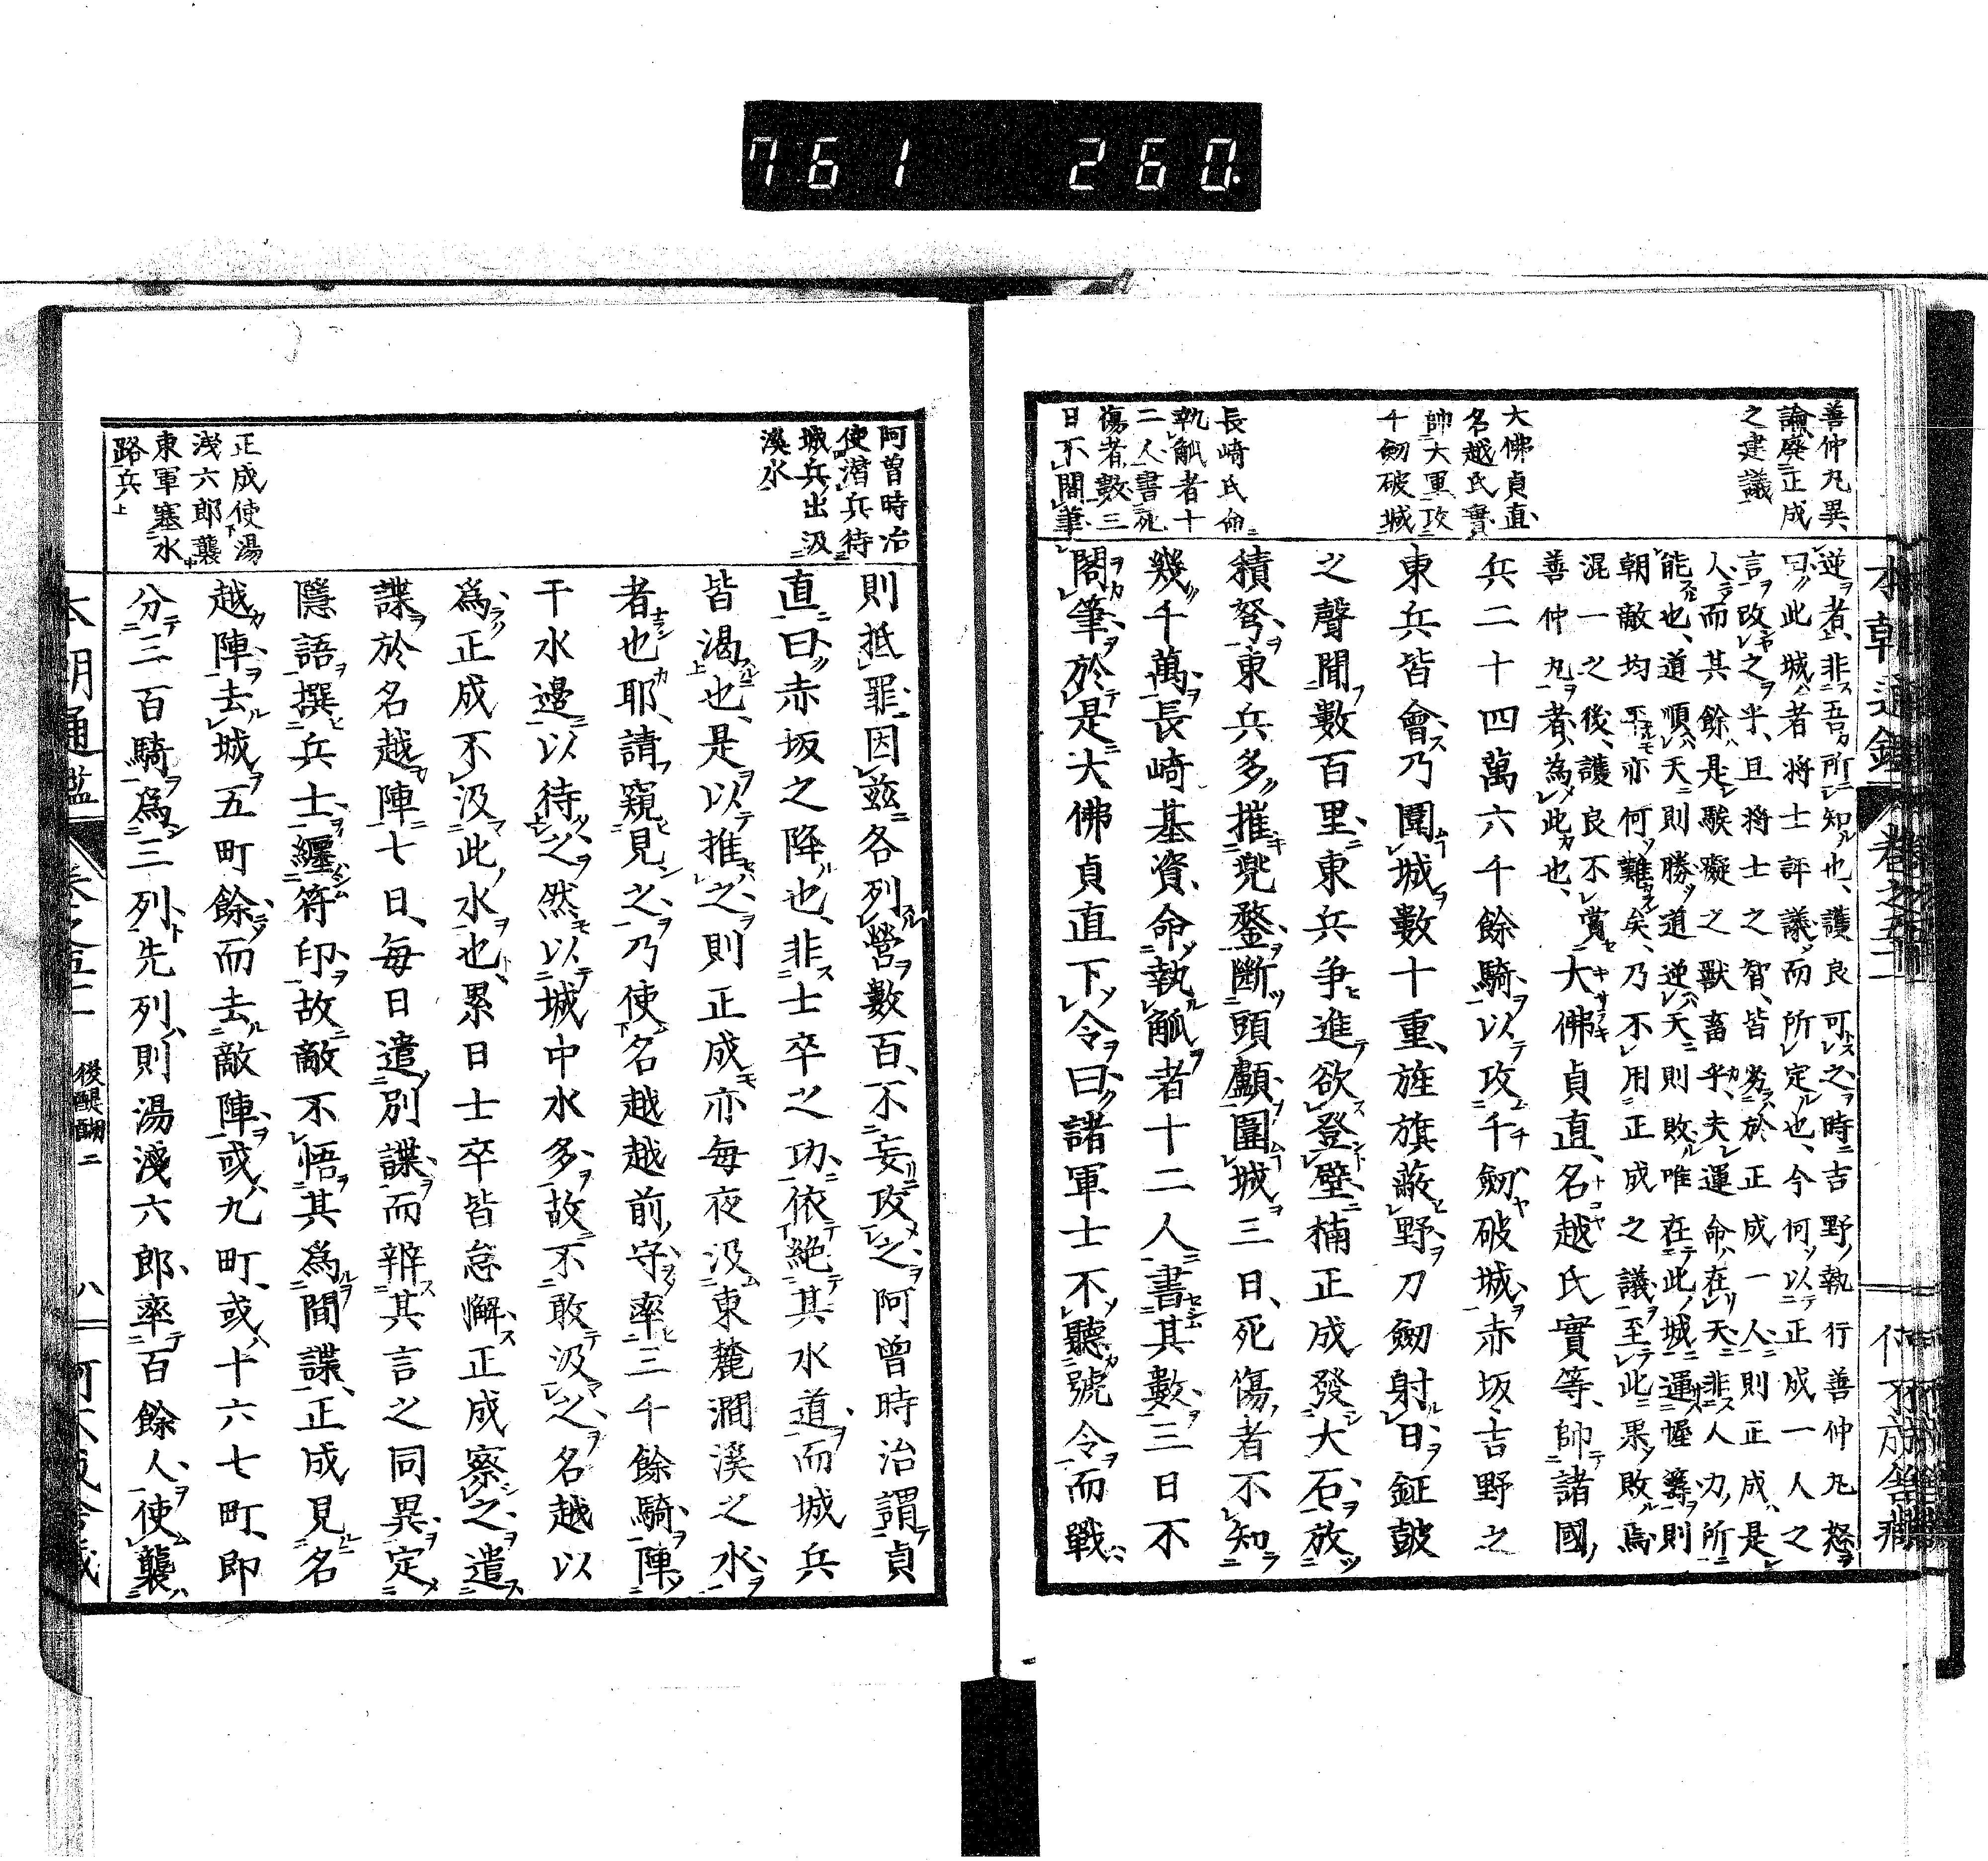 761 260
善仲丸異
論廢正成
之建議
大佛貞直
名越氏實
帥大軍攻
千劒破城
長崎氏命
執觚者十
二人書死
傷者數三
日不閣筆
逆者、非吾所知也、護良可之時吉野執行善仲丸怒
曰此城者將士評議而所定也、今何以正成一人之
言改之乎、且將士之智、皆劣於正成一人則正成是
人而其餘是騃癡之獸畜乎、夫運命在天非人力所
能也、道順天則勝道逆天則敗唯在此城運幄籌則
朝敵均平亦何難矣、乃不用正成之議至此果敗焉
混一之後、護良不賞
善仲丸者、為此也、
大佛貞直、名越氏實等、帥諸國
兵二十四萬六千餘騎以攻千劒破城赤坂吉野之
東兵皆會乃圍城數十重、旌旗蔽野刀劒射日鉦鼓
之聲聞數百里東兵爭進欲登壁楠正成發大石放
積弩、東兵多摧兜鍪斷頭顱圍城三日、死傷者不知
幾千萬長崎基資、命執觚者十二人書其數三日不
閣筆於是大佛貞直下令曰諸軍士不聽號令而戰
本朝通鑑 卷之五二
則抵罪因茲各列營數百、不妄攻之阿曾時治謂貞
直曰赤坂之降也、非士卒之功依絕其水道而城兵
皆渴也、是以推之則正成亦每夜汲東麓澗溪之水
者也耶、請窺見之乃使名越越前守率三千餘騎陣
于水邊以待之然以城中水多故不敢汲之名越以
爲正成不汲此水也、累日士卒皆怠懈正成察之遣
諜於名越陣七日、每日遣別諜而辨其言之同異定
隱語撰兵士纏符印故敵不悟其爲間諜、正成見名
越陣去城五町餘而去敵陣或九町、或十六七町、即
分三百騎爲三列先列則湯淺六郎率百餘人使襲
阿曾時治
使潛兵待
城兵出汲
溪水
正成使湯
淺六郎襲
東軍塞水
路兵
本朝通鑑 卷之五二 後醍醐二 八